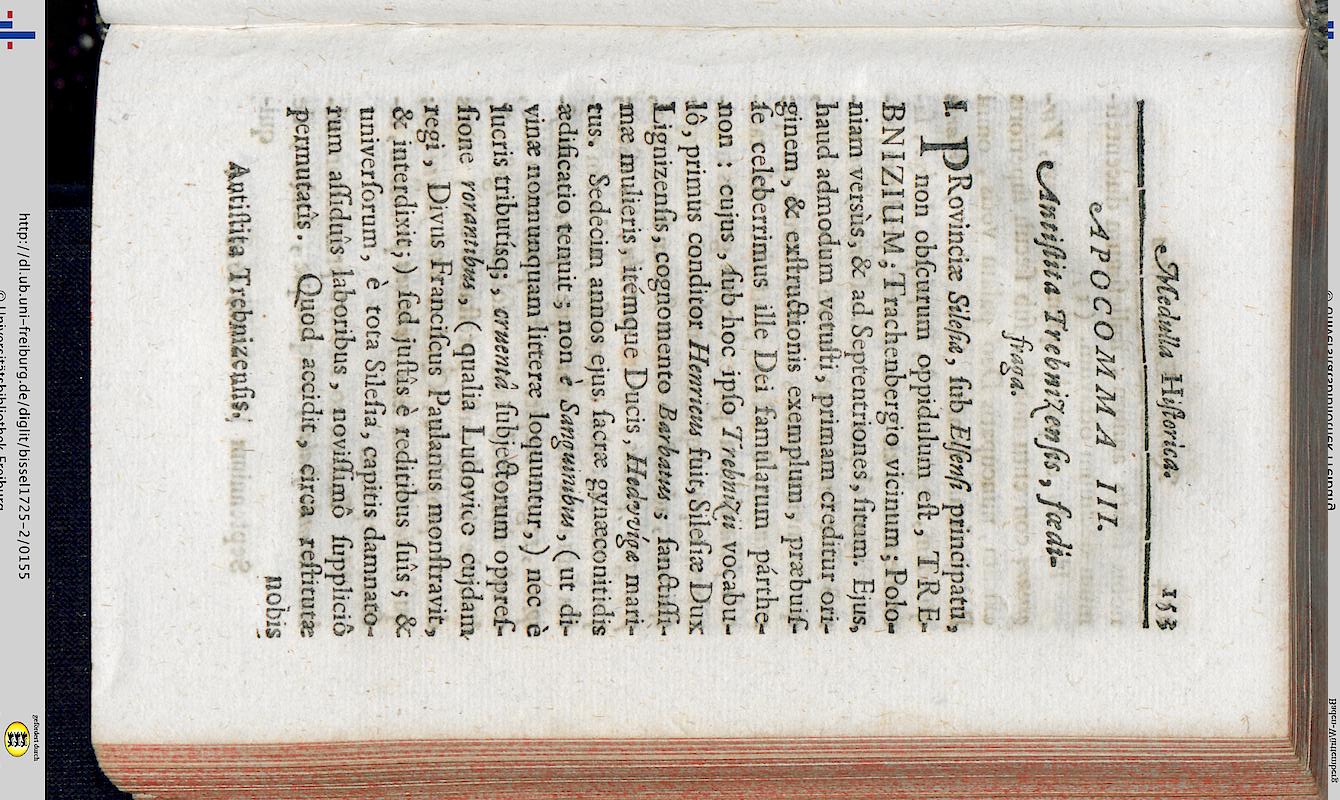 Medulla Hiſtorica. 153
APOCOMMA III.
Antiſtita Trebnizenſis, fœdi-
fraga.
I. PRovinciæ Sileſiæ, ſub Elſenſi principatu,
non obſcurum oppidulum eſt, TRE-
BNIZIUM; Trachenbergio vicinum; Polo-
niam versùs, & ad Septentriones, ſitum. Ejus,
haud admodum vetuſti, primam creditur ori-
ginem, & exſtructionis exemplum, præbuiſ-
ſe celeberrimus ille Dei famularum párthe-
non: cujus, ſub hoc ipſo Trebnizii vocabu-
lô, primus conditor Henricus fuit, Sileſiæ Dux
Lignizenſis, cognomento Barbatus; ſanctiſſi-
mæ mulieris, itémque Ducis, Hedvvigæ mari-
tus. Sedecim annos ejus ſacræ gynæconitidis
ædificatio tenuit; non è Sanguinibus, (ut di-
vinæ nonnunquam litteræ loquuntur,) nec è
lucris tributiſq;, cruentâ ſubjectorum oppreſ-
ſione rorantibus, (qualia Ludovico cujdam,
regi, Divus Franciſcus Paulanus monſtravit,
& interdixit;) ſed juſtis è reditibus ſuis; &
univerſorum, è tota Sileſia, capitis damnato-
rum aſſiduis laboribus, noviſſimô ſuppliciô
permutatis. Quod accidit, circa reſtitutæ
nobis
Antiſtita Trebnizenſis,
http://dl.ub.uni-freiburg.de/diglit/bissel1725-2/0155
© Universitätsbibliothek Freiburg
gefördert durch